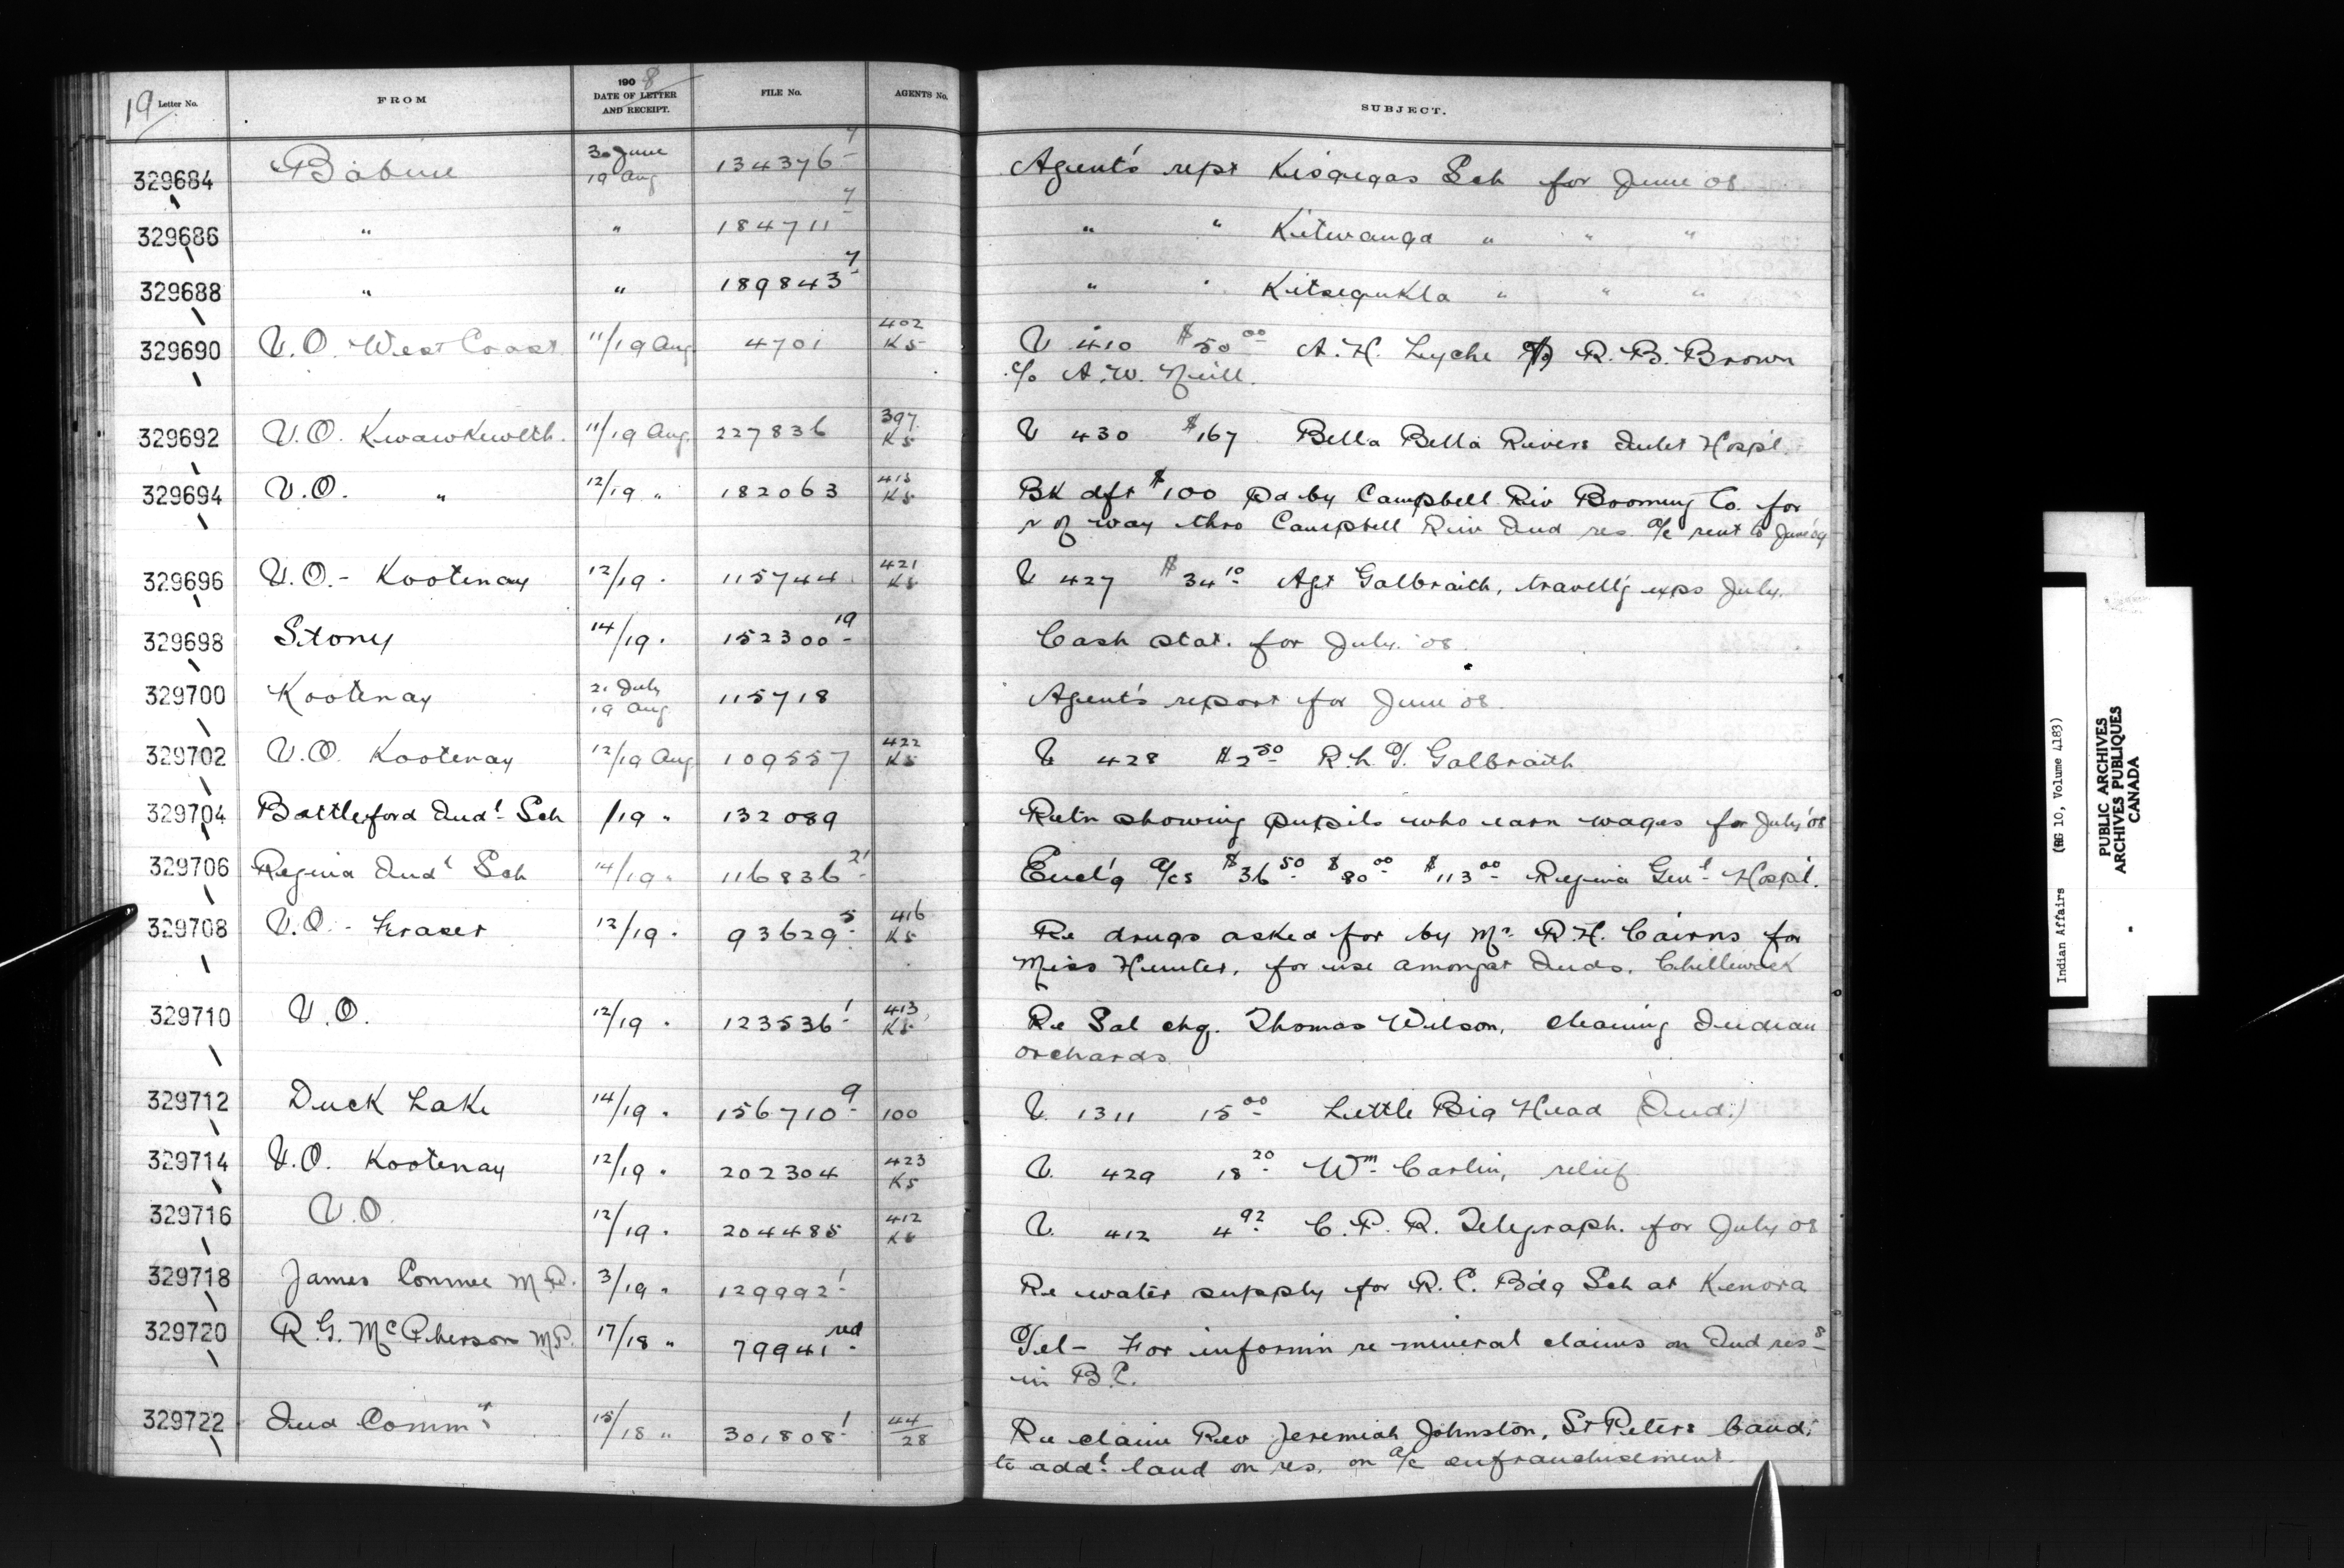 19 Letter No. FROM 1908 DATE OF LETTER AND RECEIPT. FILE No. AGENTS No. SUBJECT.
329684 Babine 30 June 19 Aug 134376-7 Agent's rept Kisgegas Sch for June 08
329686 " " 184711-7 " " Kitwanga " " "
329688 " " 189843-7 " " Kitsegukla " " "
329690 V.O. West Coast 11/19 Aug 4701 402 K5 V 410 $50.00 A.H. Lyche R.B. Brown
c/o A.W. Neill.
329692 V.O. Kwawkewlth. 11/19 Aug. 227836 397 K5 V 430 $167 Bella Bella Rivers Inlet Hospl.
329694 V.O. " 12/19 " 182063 415 K5 Bk dft $100 pd by Campbell Riv Booming Co. for
r of way thro Campbell Riv Ind res a/c rent to June 09
329696 V.O.- Kootenay 12/19 " 115744 421 K5 V 427 $34.10 Agt Galbraith, travell'g exps July.
329698 Stony 14/19 " 152300-19 Cash stat. for July. 08.
329700 Kootenay 21 July 19 Aug 115718 Agent's report for June 08.
329702 V.O. Kootenay 12/19 Aug 109557 422 K5 V 428 $2.50 R.L.T. Galbraith
329704 Battleford Indl Sch /19 " 132089 Retn showing pupils who earn wages for July 08
329706 Regina Indl Sch 14/19 " 116836-21 Encl'g a/cs $36.50 $80.00 $113.00 Regina Genl Hospl.
329708 V.O.- Fraser 12/19 " 93629-5 416 K5 Re drugs asked for by Mr R.H. Cairns for
Miss Hunter, for use amongst Inds. Chilliwack
329710 V.O. 12/19 " 123536-1 413 K5 Re Sal chq. Thomas Wilson, cleaning Indian
orchards
329712 Duck Lake 14/19 " 156710-9 100 V. 1311 15.00 Little Big Head (Ind.)
329714 V.O. Kootenay 12/19 " 202304 423 K5 V. 429 18.20 Wm Carlin, relief
329716 V.O. 12/19 " 204485 412 K5 V. 412 4.92 C.P.R. Telegraph. for July 08
329718 James Conmee M.P. 3/19 " 129992-1 Re water supply for R.C. Bdg Sch at Kenora
329720 R.G. McPherson M.P. 17/18 " 79941 red Tel- For informn re mineral claims on Ind ress
in B.C.
329722 Ind Commr 15/18 " 301808-1 44/28 Re claim Rev Jeremiah Johnston, St Peters band,
to addl land on res. on a/c enfranchisement.
Indian Affairs (RG 10, Volume 4183)
PUBLIC ARCHIVES
ARCHIVES PUBLIQUES
CANADA